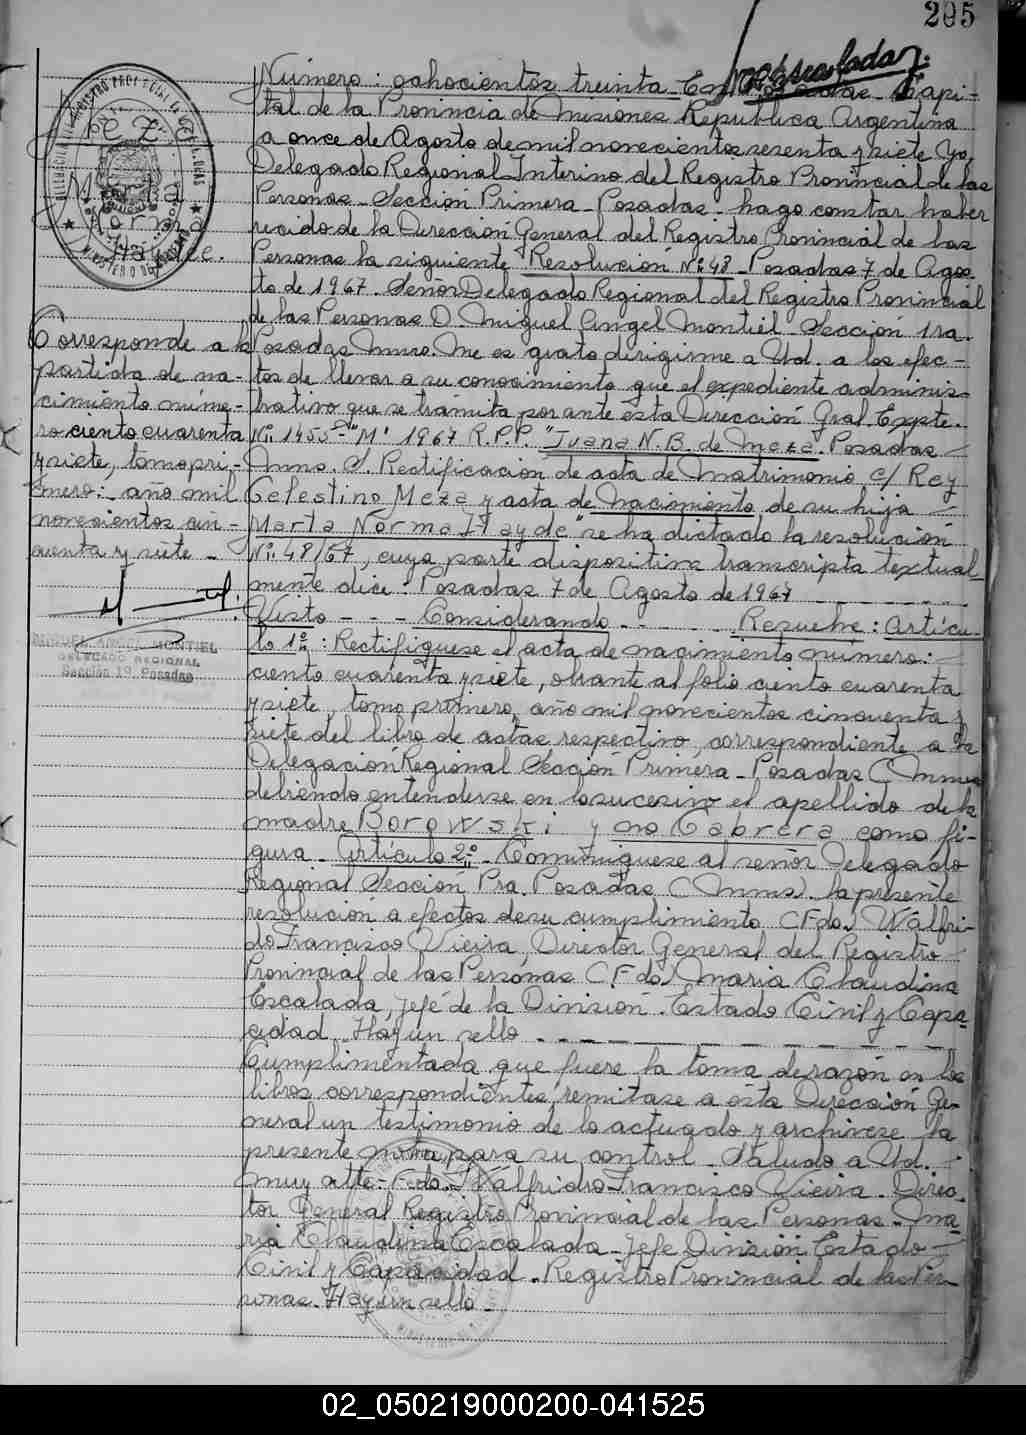 205
Escalada
Número: ochocientos treinta - En Posadas - Capi-
tal de la Provincia de Misiones República Argentina
a once de Agosto de mil novecientos sesenta y siete Yo,
Delegado Regional Interino del Registro Provincial de las
Personas - Sección Primera - Posadas - hago constar haber
recido de la Dirección General del Registro Provincial de las
Personas la siguiente Resolución Nº 48 - Posadas 7 de Agos-
to de 1967. Señor Delegado Regional del Registro Provincial
de las Personas D. Miguel Angel Montiel - Sección 1ra.
Posadas Mnes. Me es grato dirigirme a Ud. a los efec-
tos de llevar a su conocimiento que el expediente adminis-
trativo que se tramita por ante esta Dirección Gral. Expte.
Nº 1455 - "M" 1967 R.P.P. "Juana N. B. de Meza". Posadas
Mnes. S/. Rectificación de acta de Matrimonio c/ Rey
Celestino Meza y acta de Nacimiento de su hija
Marta Norma Haydé" se ha dictado la resolución
Nº 48/67, cuya parte dispositiva transcripta textual
mente dice: Posadas 7 de Agosto de 1967
Visto - - - Considerando - - - Resuelve: Artícu-
lo 1º: Rectifíquese el acta de nacimiento número:
ciento cuarenta y siete, obrante al folio ciento cuarenta
y siete, tomo primero, año mil novecientos cincuenta y
siete del libro de actas respectivo, correspondiente a la
Delegación Regional Sección Primera - Posadas (Mnes)
debiendo entenderse en lo sucesivo el apellido de la
madre Borowski y no Cabrera como fi-
gura - Artículo 2º - Comuníquese al señor Delegado
Regional Sección Pra. Posadas (Mnes). la presente
resolución a efectos de su cumplimiento (Fdo.) Walfri-
do Francisco Vieira, Director General del Registro
Provincial de las Personas (Fdo) Maria Claudina
Escalada, Jefe de la División. Estado Civil y Capa-
cidad. Hay un sello
Cumplimentada que fuere la toma de razón en los
libros correspondientes, remitase a ésta Dirección Ge-
neral un testimonio de lo actuado y archívese la
presente nota para su control - Saludo a Ud.
muy atte. - Fdo. Walfrido Francisco Vieira. Direc-
tor General Registro Provincial de las Personas - Ma-
ria Claudina Escalada - Jefe División Estado
Civil y Capacidad. Registro Provincial de las Per-
sonas. Hay un sello -
Meza
Marta
Norma
Haydee.
Corresponde a la
partida de na-
cimiento núme-
ro ciento cuarenta
y siete, tomo pri-
mero: - año mil
novecientos cin-
cuenta y siete -
MIGUEL ANGEL MONTIEL
DELEGADO REGIONAL
Sección 1ª. Posadas
02_050219000200-041525